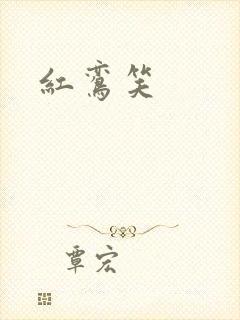 紅鸞笑
覃宏